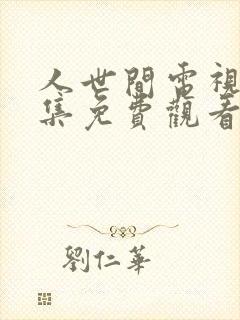 人世間電視
集免費觀看
劉仁華